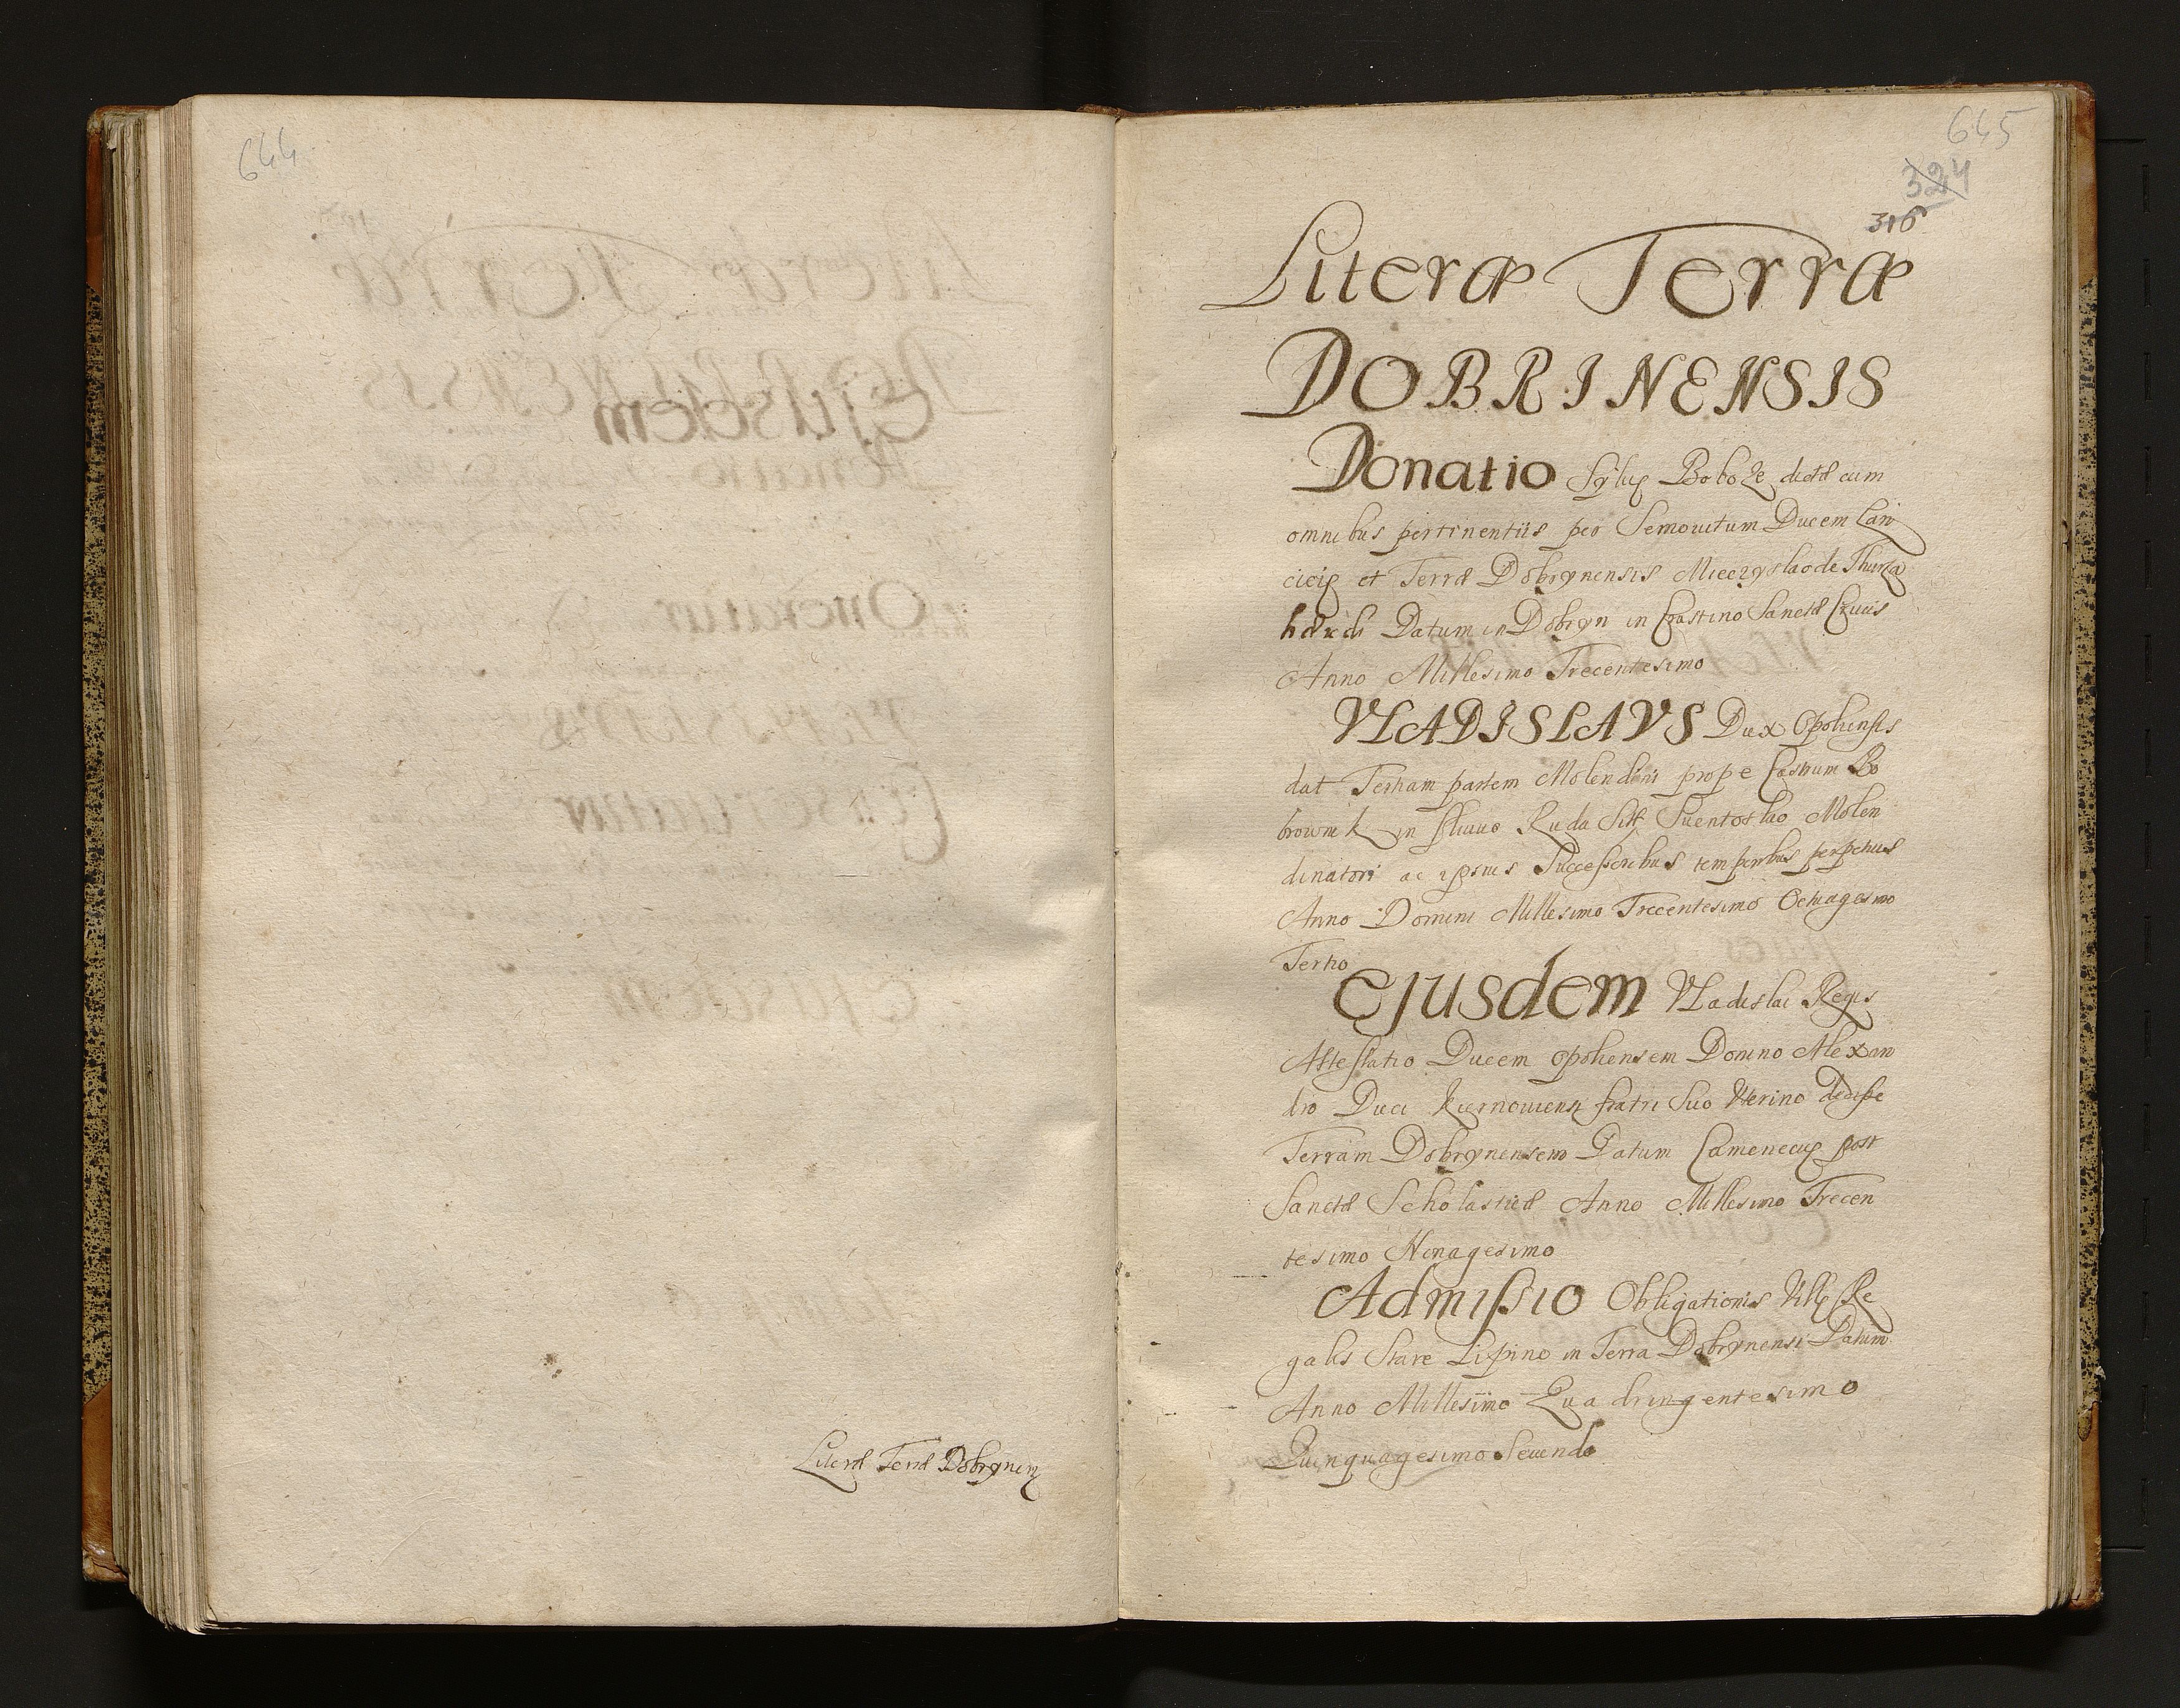 644
Literæ Terræ Dobrynens
645
324
316
Literæ Terræ
DOBRINENSIS
Donatio Sylvę Boboże dictæ cum
omnibus pertinentiis per Semovitum Ducem Lan
cicię et Terræ Dobrynensis Mieczyslao de Thurza
hæredi Datum in Dobryn in Crastino Sanctæ Crucis
Anno Millesimo Trecentesimo
VLADISLAVS Dux Opoliensis
dat Tertiam partem Molendini prope Castrum Bo
brownik in fluvio Ruda Suentoslao Molen
dinatori ac ipsius Successoribus temporibus perpetuis
Anno Domini Millesimo Trecentesimo Octuagesimo
Tertio
Ejusdem Vladislai Regis
Attestatio Ducem Opoliensem Domino Alexan
dro Duci Kiernoviensi fratri suo Uterino dedisse
Terram Dobrynensem Datum Camenecię post
Sanctæ Scholasticæ Anno Millesimo Trecen
tesimo Nonagesimo
Admissio Obligationis Villę Re
galis Stare Lipino in Terra Dobrynensi Datum
Anno Millesimo Quadringentesimo
Quinquagesimo Secundo